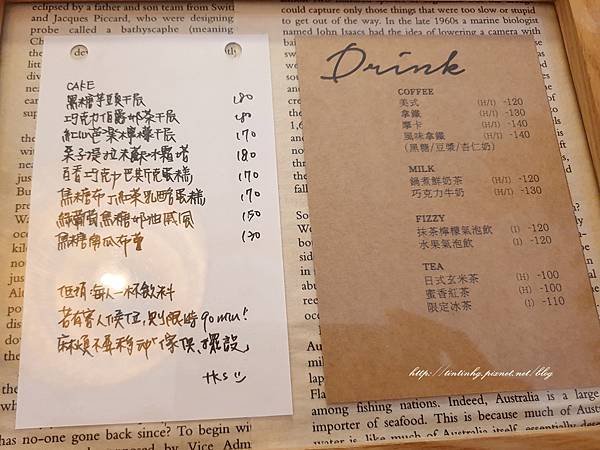 eclipsed by a father and son team from Swit
and Jacques Piccard, who were designing
probe called a bathyscaphe (meaning
could capture only those things that were too slow or stupid
to get out of the way. In the late 1960s a marine biologist
named John Isaacs had the idea of lowering a camera with
CAKE
黑糖芋頭千層 180
巧克力伯爵奶茶千層 180
紅心芭樂檸檬千層 170
栗子提拉米蘇冰霜塔 180
百香巧克力巴斯克蛋糕 170
焦糖布丁紅茶乳酪蛋糕 170
綠葡萄焦糖奶油戚風 150
焦糖南瓜布蕾 130
低消:每人一杯飲料
若有客人候位,則限時90min!
麻煩不要移動「傢俱、擺設」
tks
Drink
COFFEE
美式 (H/I) -120
拿鐵 (H/I) -130
摩卡 (H/I) -140
風味拿鐵 (H/I) -140
(黑糖/豆漿/杏仁奶)
MILK
鍋煮鮮奶茶 (H/I) -120
巧克力牛奶 (H/I) -130
FIZZY
抹茶檸檬氣泡飲 (I) -120
水果氣泡飲 (I) -120
TEA
日式玄米茶 (H) -100
蜜香紅茶 (H) -100
限定冰茶 (I) -110
http://tintinhg.pixnet.net/blog
among fishing nations. Indeed, Australia is a large
importer of seafood. This is because much of Aust
water is, like much of Australia itself, essentially deser
has no-one gone back since? To begin wi